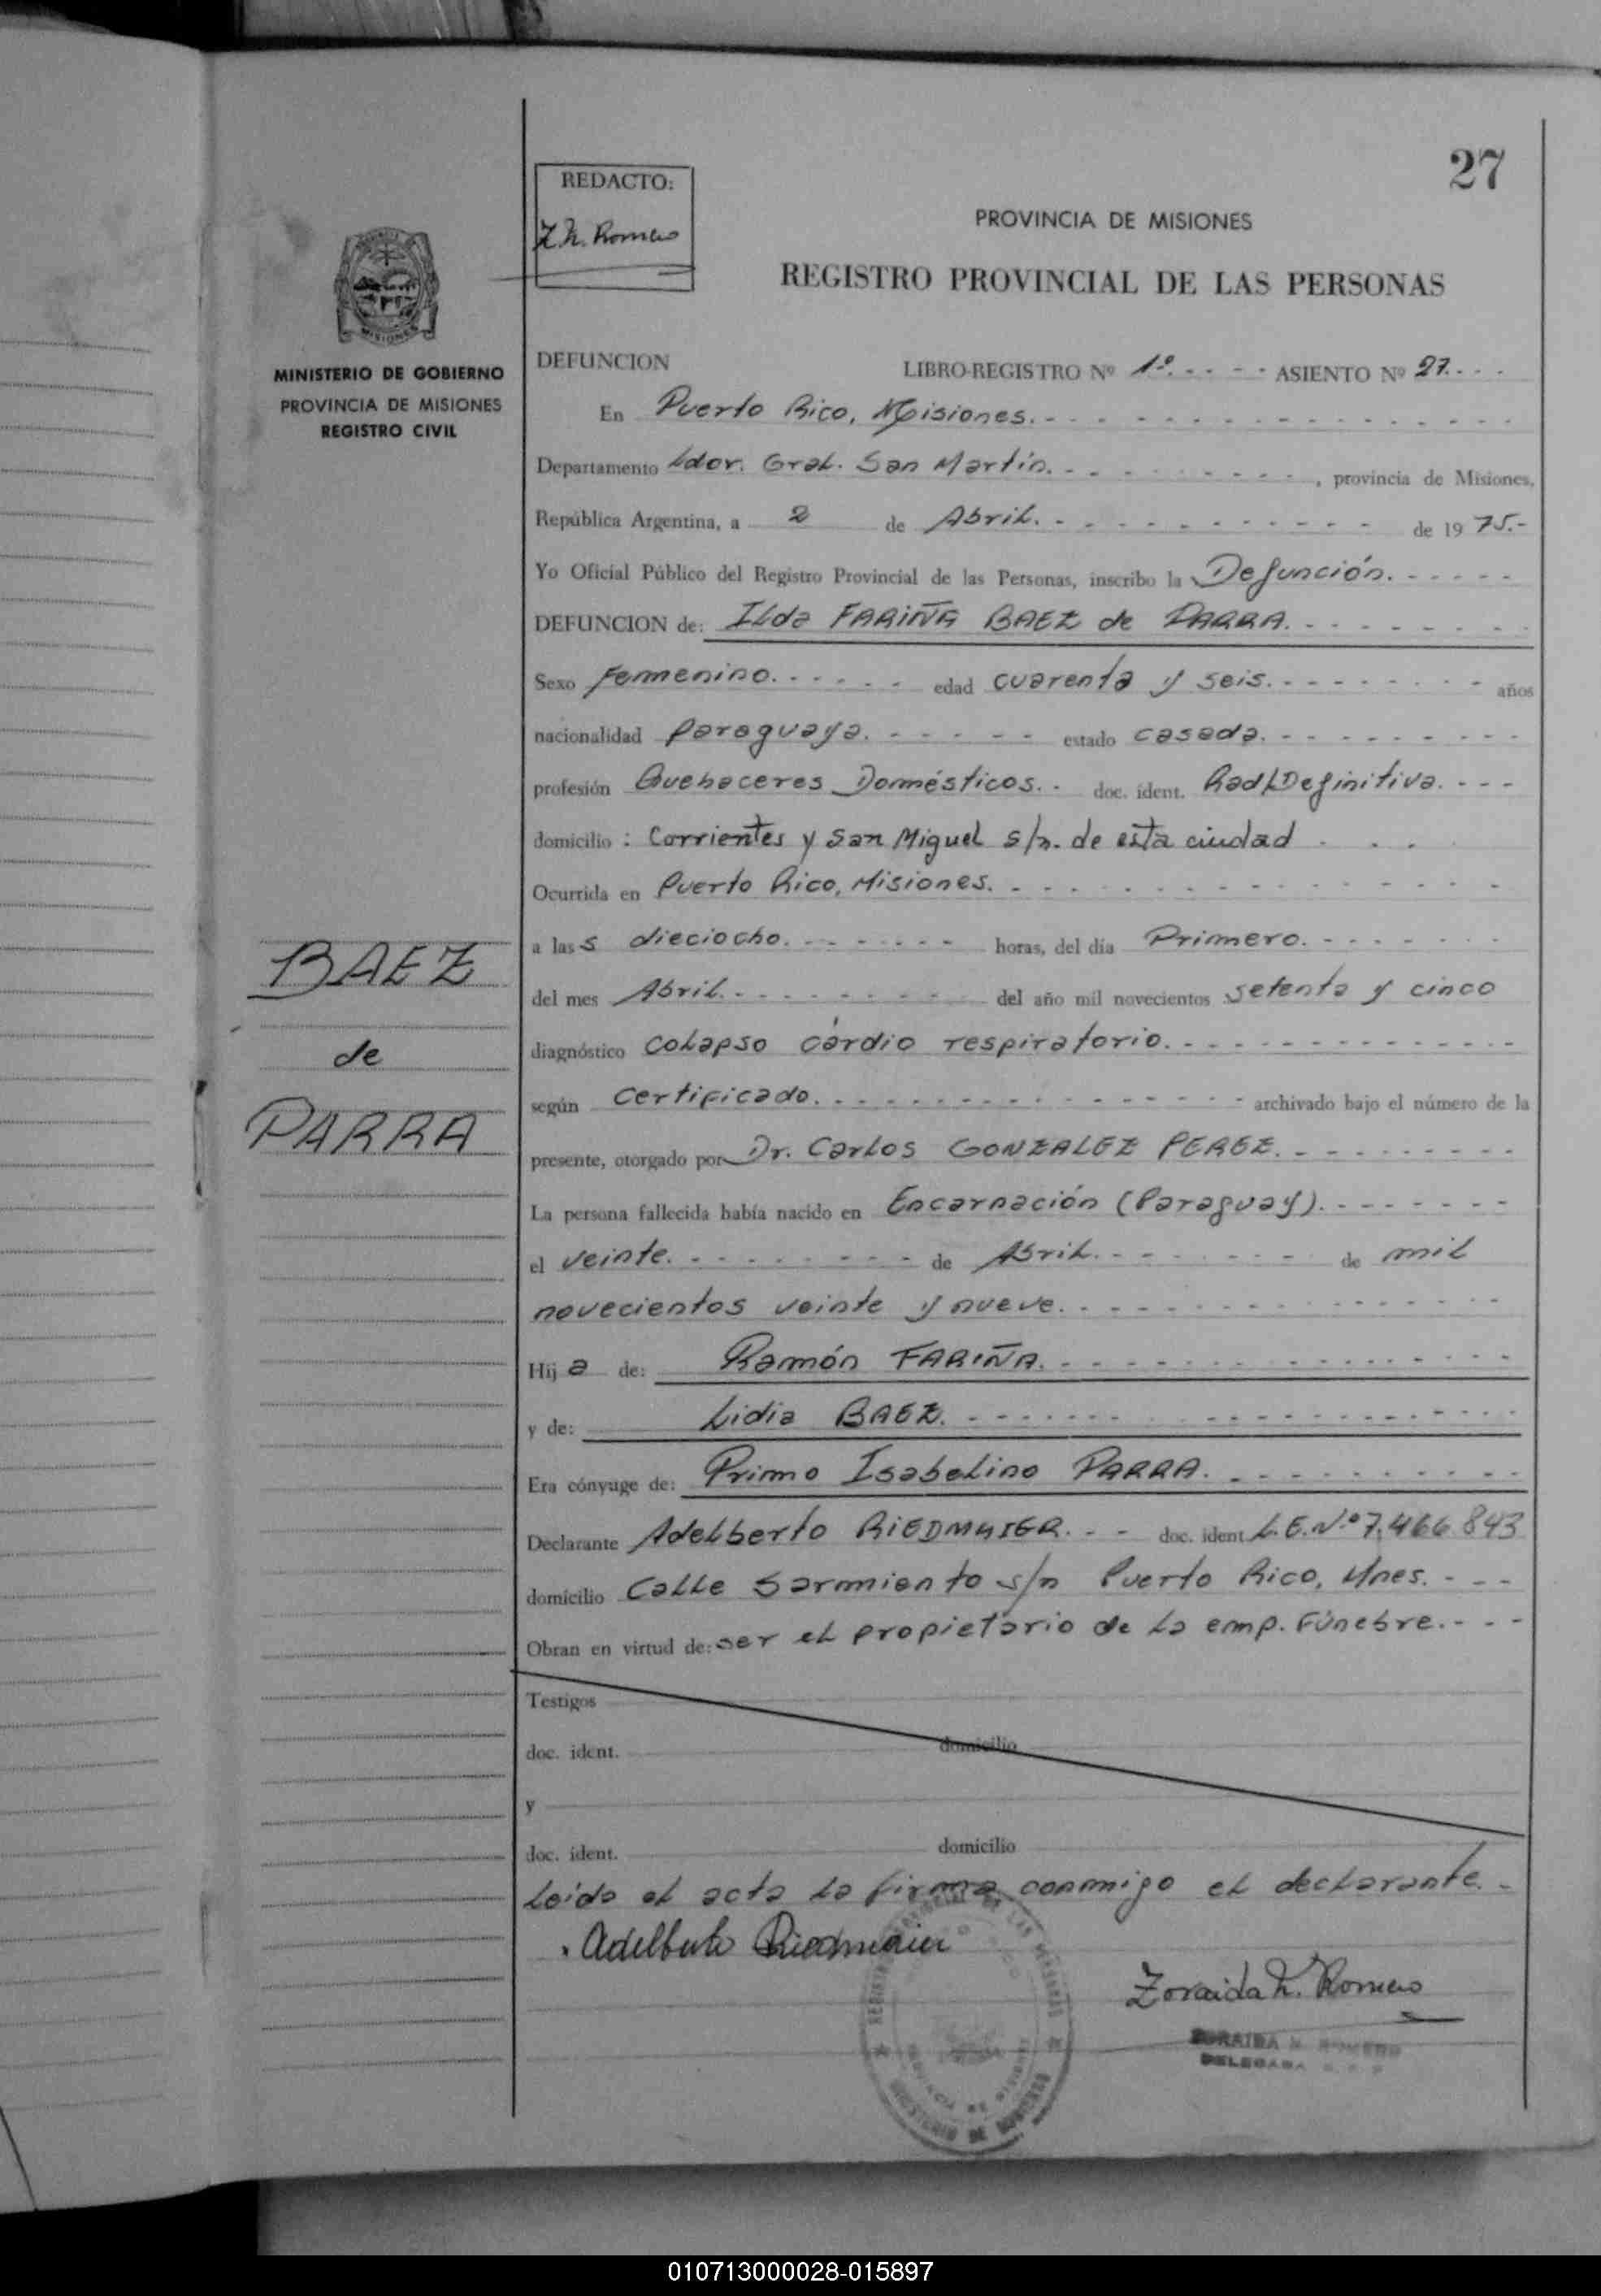 27
REDACTO:
Z. N. Romero
PROVINCIA DE MISIONES
REGISTRO PROVINCIAL DE LAS PERSONAS
MISIONES
MINISTERIO DE GOBIERNO
PROVINCIA DE MISIONES
REGISTRO CIVIL
DEFUNCION LIBRO-REGISTRO Nº 1º. - - - - ASIENTO Nº 27. - - -
En Puerto Rico, Misiones. - - - - - - - - - - - - - - -
Departamento Ldor. Gral. San Martín. - - - - - - - - - , provincia de Misiones,
República Argentina, a 2 de Abril. - - - - - - - - - - - de 19 75.-
Yo Oficial Público del Registro Provincial de las Personas, inscribo la Defunción. - - - - -
DEFUNCION de: Ilda FARIÑA BAEZ de PARRA. - - - - - - - -
Sexo Femenino. - - - - - edad cuarenta y seis. - - - - - - - - años
nacionalidad Paraguaya. - - - - - estado casada. - - - - - - - - -
profesión Quehaceres Domésticos. - doc. ident. Rad/Definitiva. - - -
domicilio : Corrientes y San Miguel s/n. de esta ciudad . . .
Ocurrida en Puerto Rico, Misiones. - - - - - - - - - - - - - - -
a las s dieciocho. - - - - - - - horas, del día Primero. - - - - - - -
del mes Abril. - - - - - - - - del año mil novecientos setenta y cinco
diagnóstico Colapso cárdio respiratorio. - - - - - - - - - - - - - -
según Certificado. - - - - - - - - - - - - - - - archivado bajo el número de la
presente, otorgado por Dr. Carlos GONZALEZ PEREZ. - - - - - - - - -
La persona fallecida había nacido en Encarnación (Paraguay). - - - - - - -
el veinte. - - - - - - - - - de Abril. - - - - - - - - de mil
novecientos veinte y nueve. - - - - - - - - - - - - - - - -
Hij a de: Ramón FARIÑA. - - - - - - - - - - - - - - - -
y de: Lidia BAEZ. - - - - - - - - - - - - - - - - - - -
Era cónyuge de: Primo Isabelino PARRA. - - - - - - - - - - -
Declarante Adelberto RIEDMAIER. - - doc. ident L.E.N.º 7.466.843
domicilio Calle Sarmiento s/n Puerto Rico, Mnes. - - -
Obran en virtud de: ser el propietario de la emp. Fúnebre. - - -
Testigos
doc. ident. domicilio
y
doc. ident. domicilio
Leída el acta la firma conmigo el declarante. -
Adelberto Riedmaier
Zoraida N. Romero
ZORAIDA N. ROMERO
DELEGADA
REGISTRO PROVINCIAL DE LAS PERSONAS
PROVINCIA DE MISIONES
MINISTERIO DE GOBIERNO
BAEZ
de
PARRA
010713000028-015897